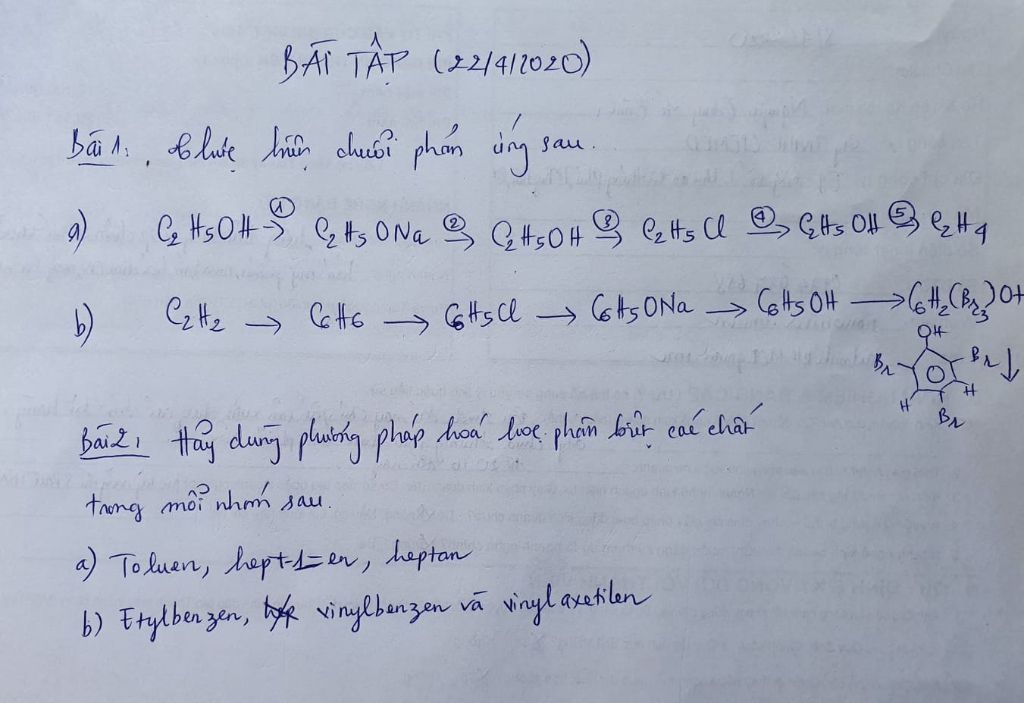 BÀI TẬP (22/4/2020)
Bài 1: Thực hiện chuỗi phản ứng sau.
a) C2H5OH →① C2H5ONa →② C2H5OH →③ C2H5Cl →④ C2H5OH →⑤ C2H4
b) C2H2 → C6H6 → C6H5Cl → C6H5ONa → C6H5OH → C6H2(Br3)OH
OH
Br Br ↓
H H
Br
Bài 2: Hãy dùng phương pháp hoá học phân biệt các chất
trong mỗi nhóm sau.
a) Toluen, hept-1-en, heptan
b) Etylbenzen, vinylbenzen và vinylaxetilen